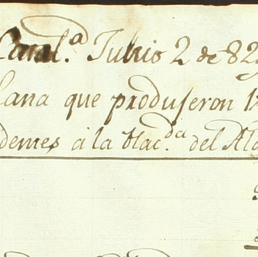 Catal.ª Julio 2 de 82
Lana que produjeron 1
demes á la Hac.da del Al